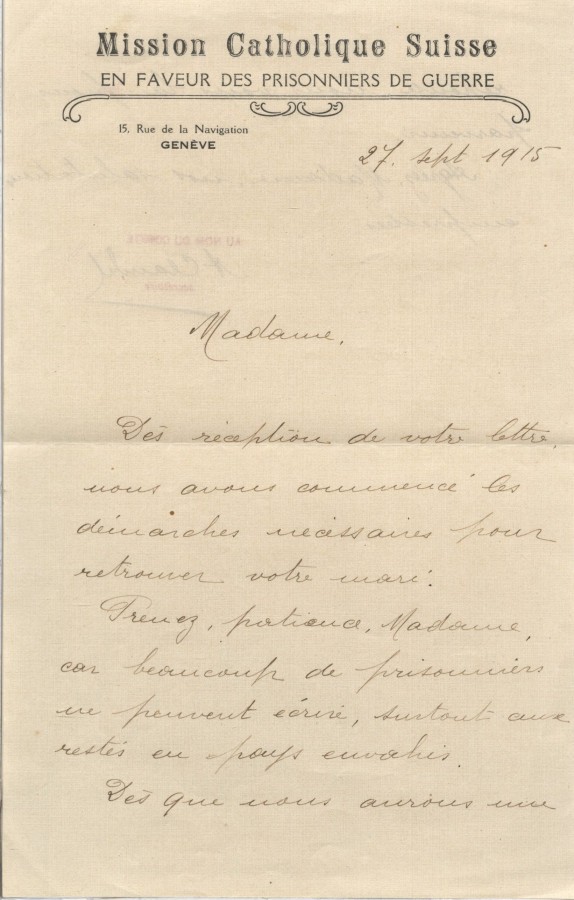 Mission Catholique Suisse
EN FAVEUR DES PRISONNIERS DE GUERRE
15, Rue de la Navigation
GENÈVE
27. Sept 1915
Madame,
Dès réception de votre lettre,
nous avons commencé les
démarches nécessaires pour
retrouver votre mari.
Prenez, patience, Madame,
car beaucoup de prisonniers
ne peuvent écrire, surtout aux
restés en pays envahis.
Dès que nous aurons une